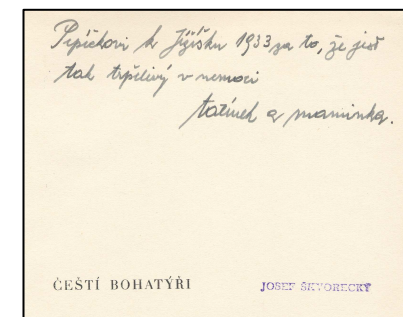 Pepíčkovi k Ježíšku 1933 za to, že jest
tak trpělivý v nemoci
tatínek a maminka.
ČEŠTÍ BOHATÝŘI
JOSEF ŠKVORECKÝ